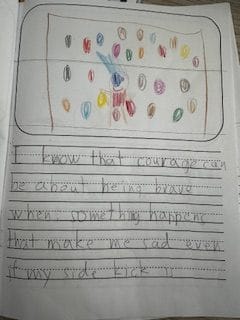 I know that courage can
be about being brave
when something happens
that make me sad even
if my side kick is